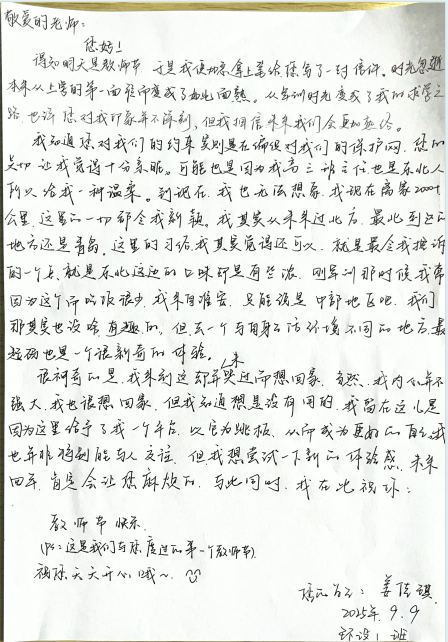 敬爱的老师:
您好!
得知明天是教师节,于是我便想拿上笔给您写了一封信件。时光
本来从上学的第一面轻印度成了如此面熟。从军训时光度成了我的求学之
路,也许您对我印象并不深刻,但我相信未来我们会更加熟络。
我知道您对我们的约束莫则是在编但对我们的保护网。您的
关切让我觉得十分亲昵。可能也是因为我高三班主任也是东北人
所以给我一种温柔。到现在,我也无法想象,我现在离家2000千
公里,这里的一切都令我新颖。我其实从来未过北方,最北到过的
地方还是青岛。这里的习俗我其实觉得还可以,就是最令我
的一个点,就是东北这边的口味却是有些浓。刚军训那时候我常
因为这个而吃很少,我来自淮安,只能说是中部地区吧,我们
那其实也没啥有趣的,但去一个与自身生活环境不同的地方,最
起码也是一个很新奇的体验。
很神奇的是,我来到这却并未哭过而想回家,竟然,我内心并不
强大,我也很想回家,但我知道想是没有用的,我留在这儿是
因为这里给予了我一个平台,以它为跳板,从而成为更好的自己,我
也并非特别能与人交谈,但我想尝试一下新的体验感,未来
四年,肯定会让您麻烦的,与此同时,我在此祝您:
教师节快乐.
(PS:这是我们与您度过的第一个教师节).
祝您天天开心哦~.
姜佳琪
2025年.9.9
1班